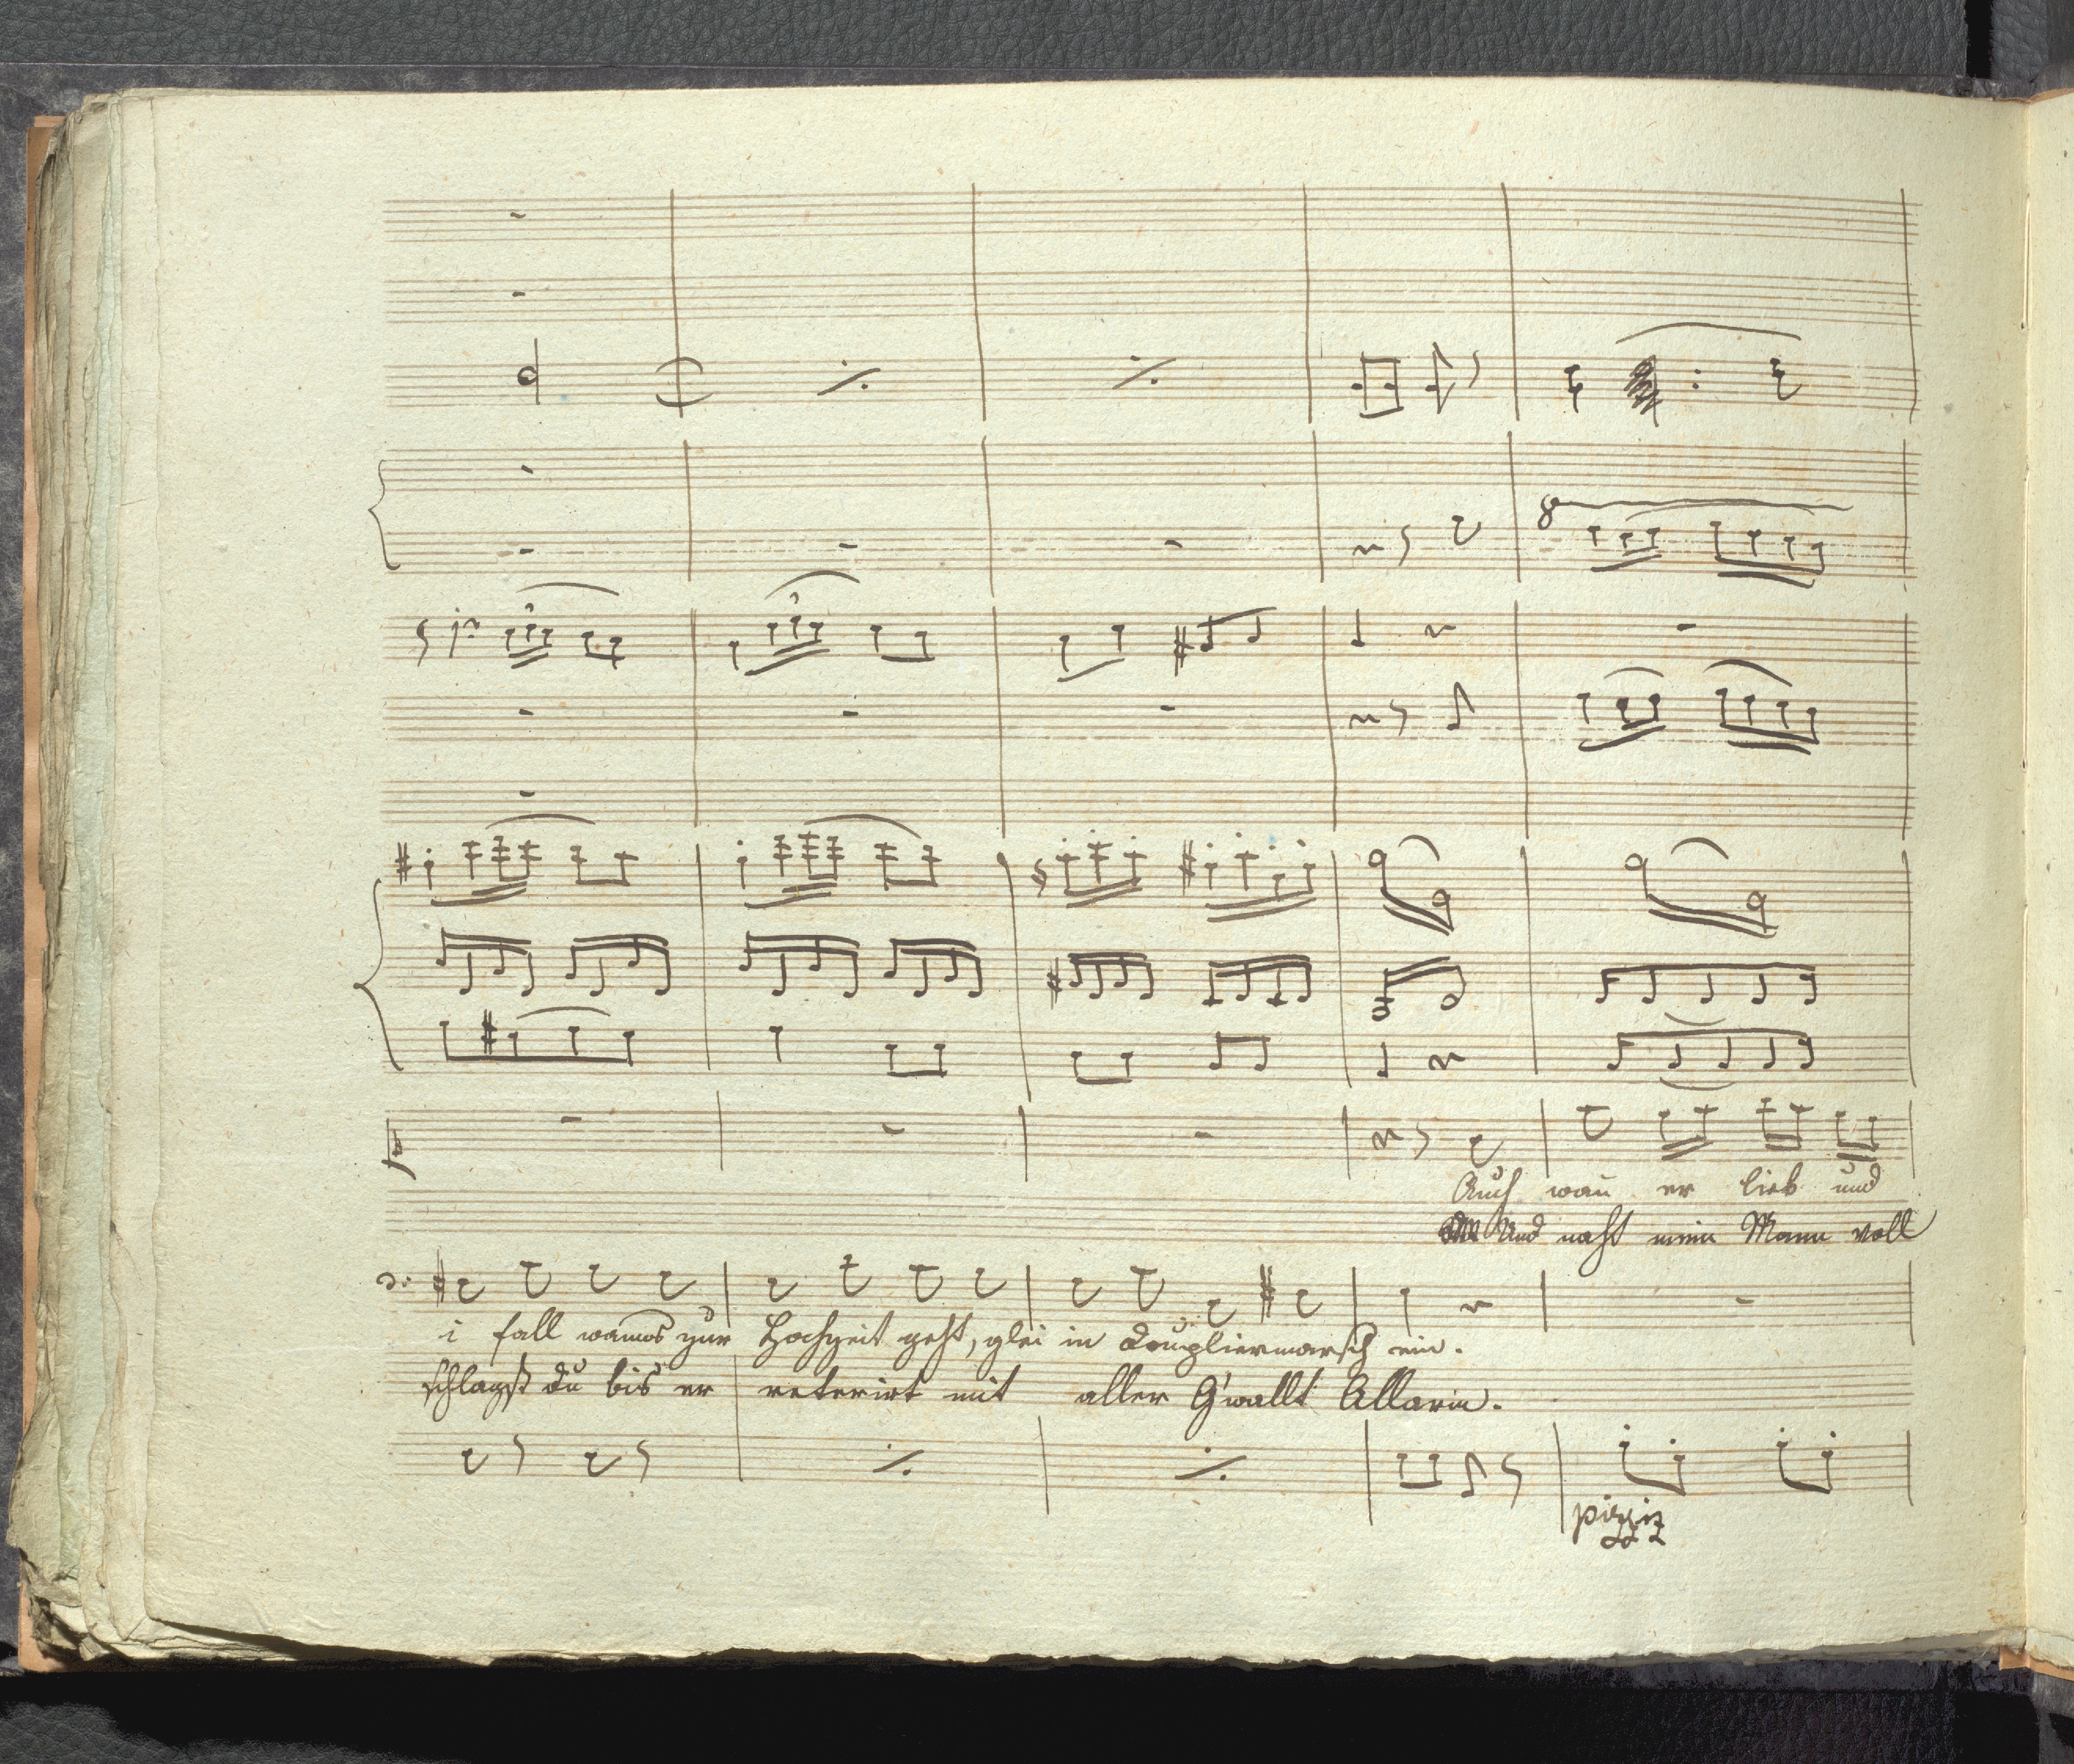 8
Auch wan̄ er lieb und
Und naht mein Mann voll
i fall wanns zur Hochzeit geht, glei in Doupliermarsch ein.
schlagst du bis er reterirt mit aller G'wallt Allarm.
pizziz